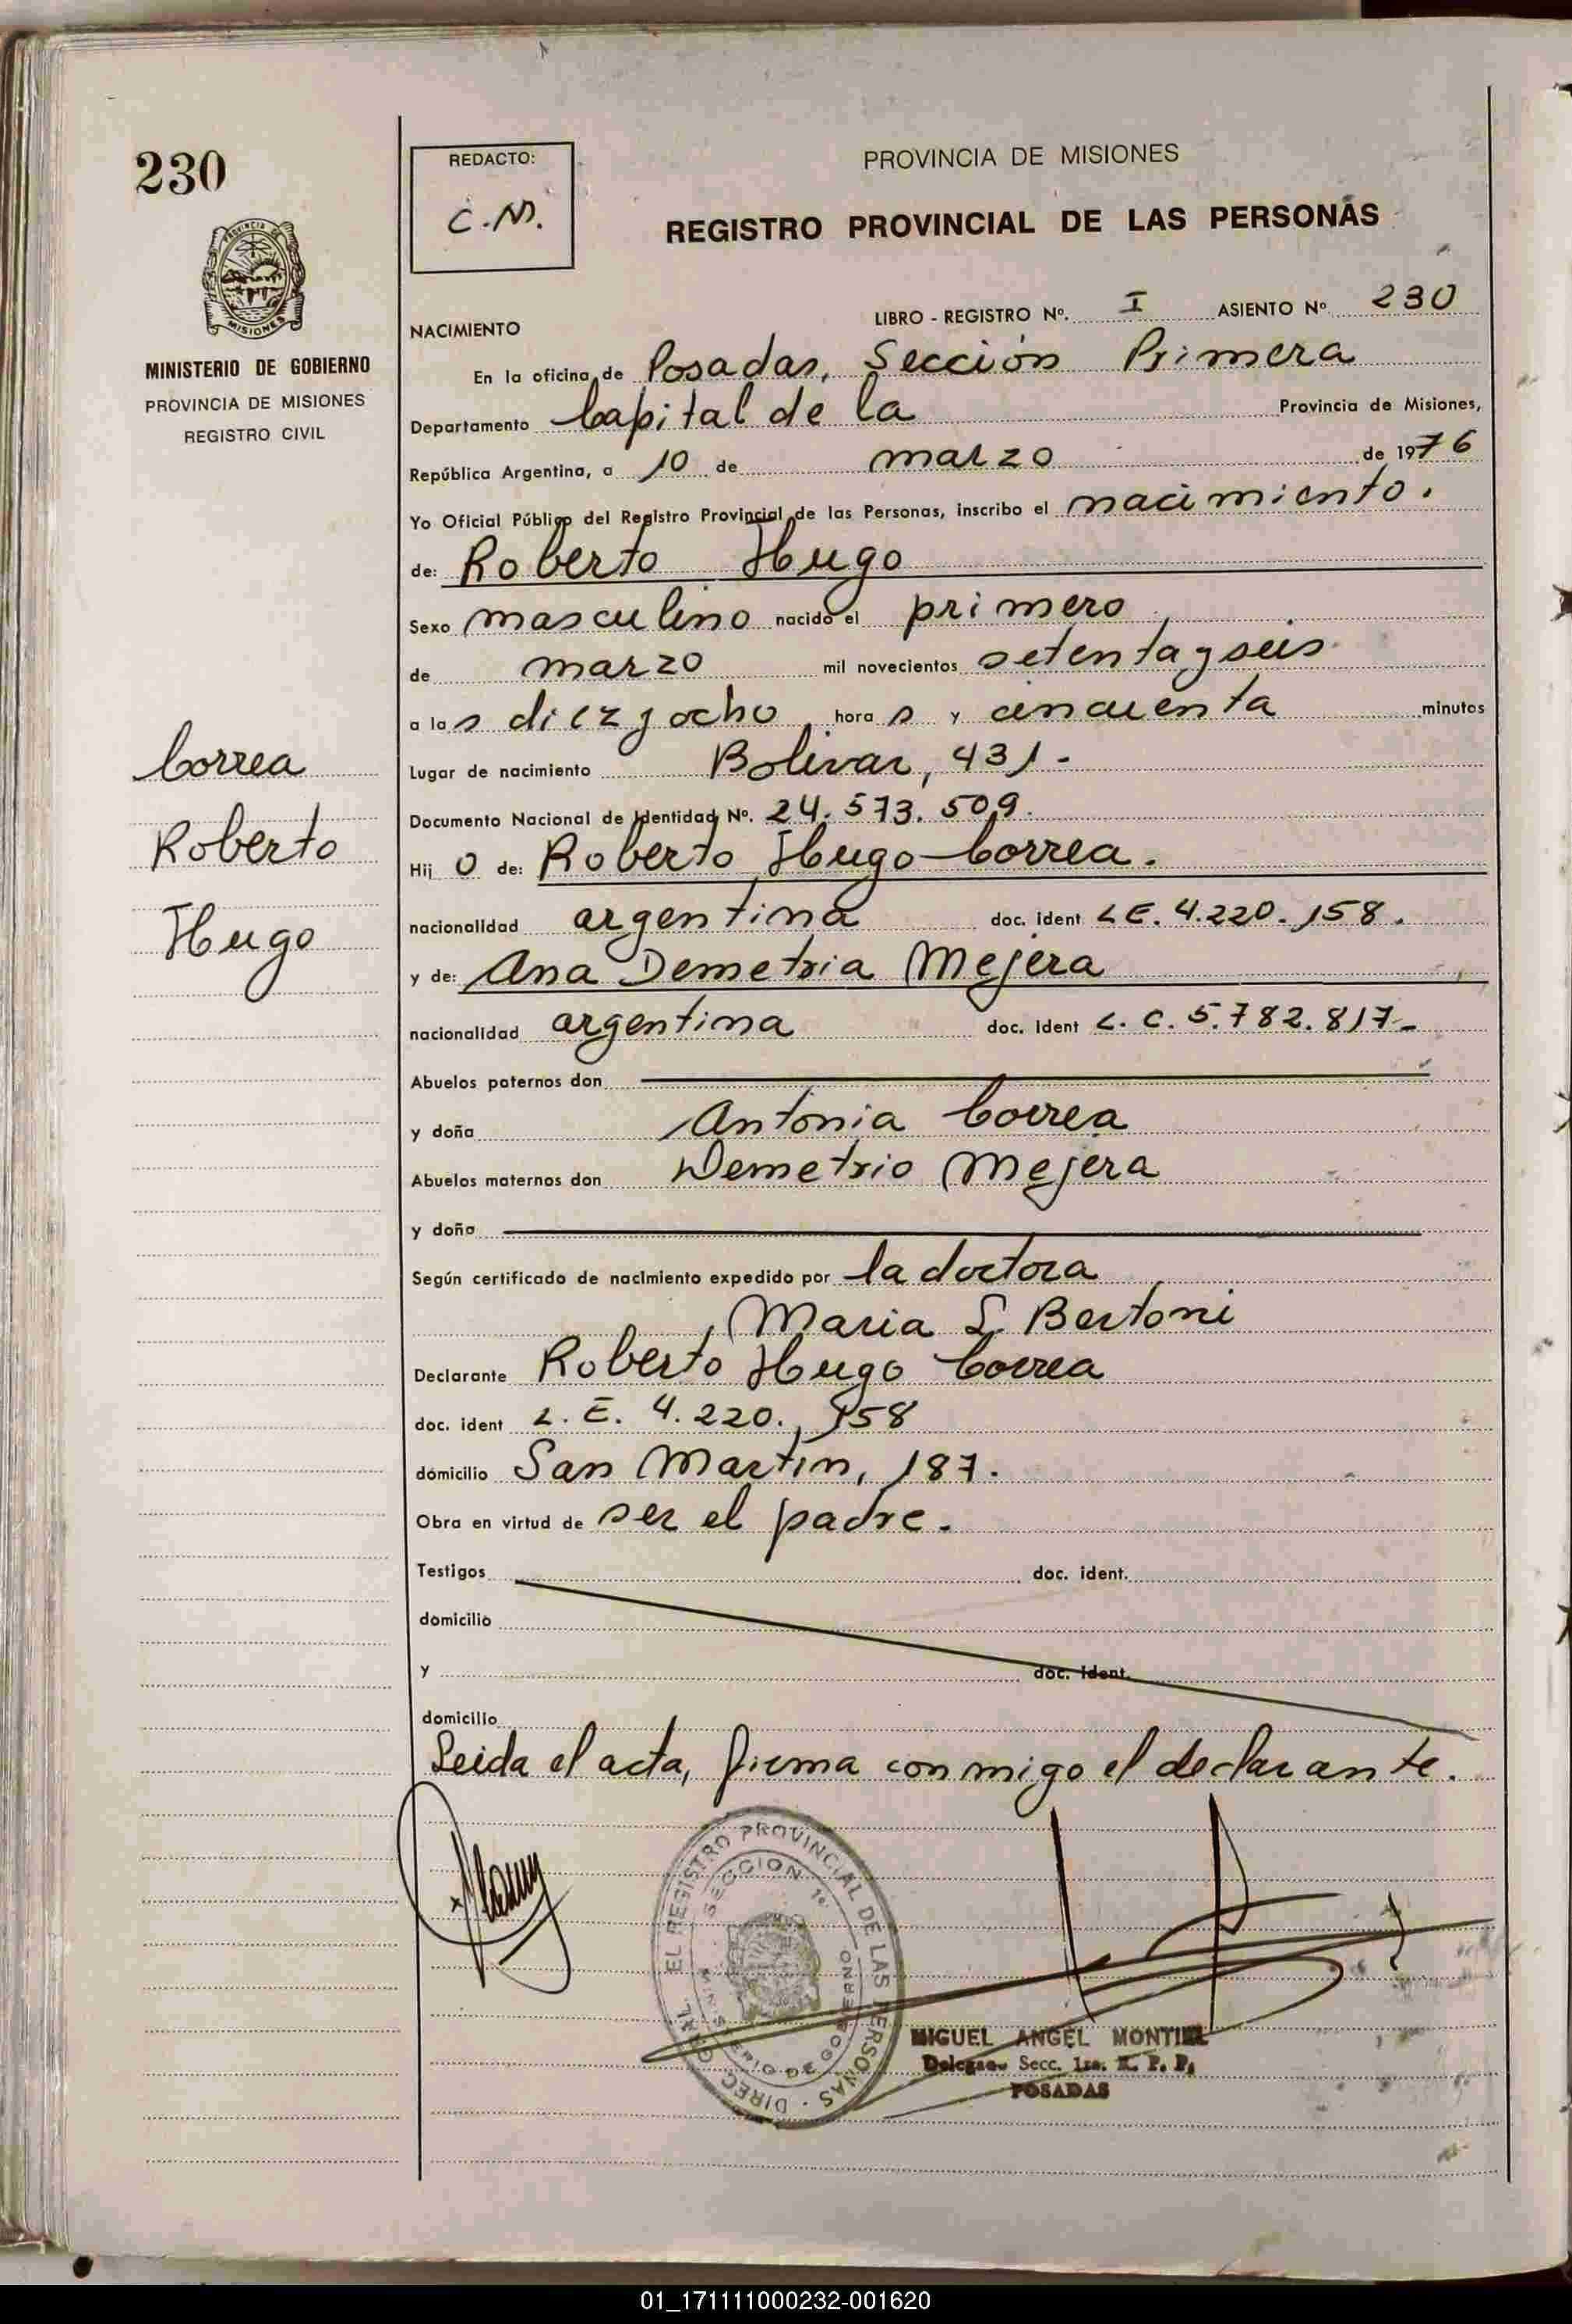 230
REDACTO:
C.M.
PROVINCIA DE MISIONES
REGISTRO PROVINCIAL DE LAS PERSONAS
PROVINCIA DE
MISIONES
MINISTERIO DE GOBIERNO
PROVINCIA DE MISIONES
REGISTRO CIVIL
LIBRO - REGISTRO Nº. I ASIENTO Nº 230
NACIMIENTO
En la oficina de Posadas, Sección Primera
Departamento Capital de la Provincia de Misiones,
República Argentina, a 10 de marzo de 1976
Yo Oficial Público del Registro Provincial de las Personas, inscribo el nacimiento.
de: Roberto Hugo
Sexo masculino nacido el primero
de marzo mil novecientos setenta y seis
a las diez y ocho horas y cincuenta minutos
Correa
Roberto
Hugo
Lugar de nacimiento Bolivar, 431-
Documento Nacional de Identidad Nº. 24.573.509.
Hijo de: Roberto Hugo Correa.
nacionalidad argentina doc. ident LE. 4.220.158.
y de: Ana Demetria Mejera
nacionalidad argentina doc. ident L. C. 5.782.817-
Abuelos paternos don
y doña Antonia Correa
Abuelos maternos don Demetrio Mejera
y doña
Según certificado de nacimiento expedido por la doctora
Maria L Bertoni
Declarante Roberto Hugo Correa
doc. ident L. E. 4.220.158
domicilio San Martin, 187.
Obra en virtud de ser el padre.
Testigos doc. ident.
domicilio
y doc. ident.
domicilio
Leida el acta, firma conmigo el declarante.
DIREC. GRAL. EL REGISTRO PROVINCIAL DE LAS PERSONAS
SECCION 1º
MINISTERIO DE GOBIERNO
MIGUEL ANGEL MONTIEL
Secc. 1ra. R. P. P.
POSADAS
01_171111000232-001620